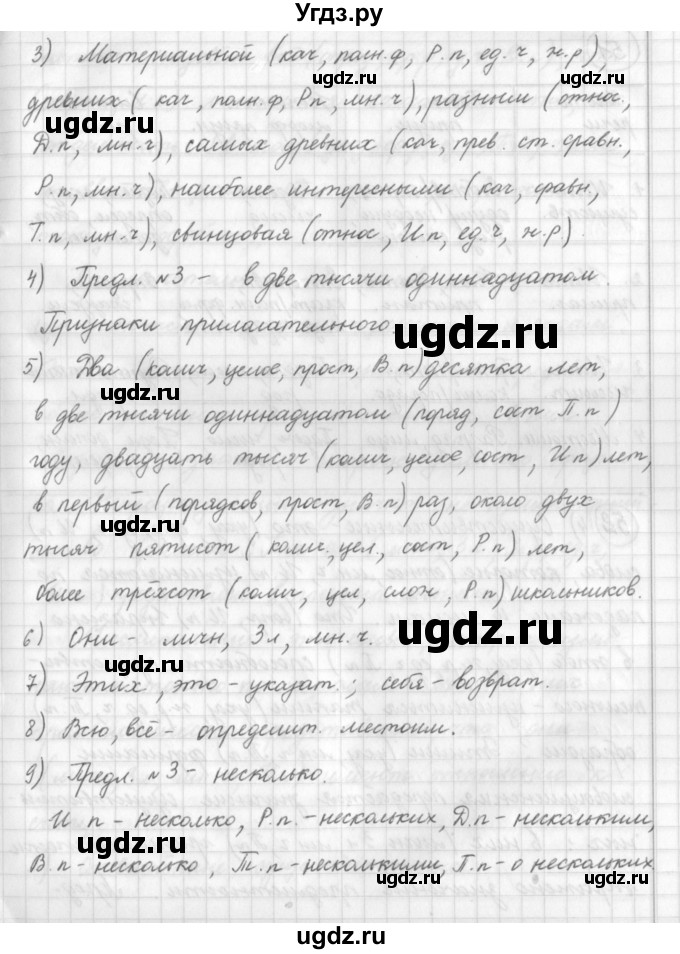 Угдз.ру
3) Материальной (кач, полн.ф, Р.п, ед.ч, ж.р),
древних ( кач, полн.ф, Р.п, мн.ч), разным (относ.,
ugdz.ru
ugdz.ru
Д.п, мн.ч), самых древних (кач, прев. ст. сравн.,
Р.п, мн.ч), наиболее интересными (кач, сравн.,
Т.п, мн.ч), свинцовая (относ, И.п, ед.ч, ж.р).
4) Предл. №3 - в две тысячи одиннадцатом.
Признаки прилагательного.
ugdz.ru
5) Два (колич, целое, прост, В.п) десятка лет,
ugdz.ru
в две тысячи одиннадцатом (поряд, сост П.п)
году, двадцать тысяч (колич, целое, сост, И.п) лет,
в первый (порядков, прост, В.п) раз, около двух
ugdz.ru
тысяч пятисот (колич., цел, сост, Р.п) лет,
более трёхсот (колич, цел, слож, Р.п) школьников.
6) Они - личн, 3л, мн.ч.
ugdz.ru
ugdz.ru
7) Этих, это - указат.; себя - возврат.
8) Всю, всё - определит. местоим.
9) Предл. №3 - несколько.
И п - несколько, Р.п. - нескольких, Д.п - нескольким,
ugdz.ru
В.п - несколько, Т.п - несколькими, П.п - о нескольких
ugdz.ru
ugdz.ru
ugdz.ru